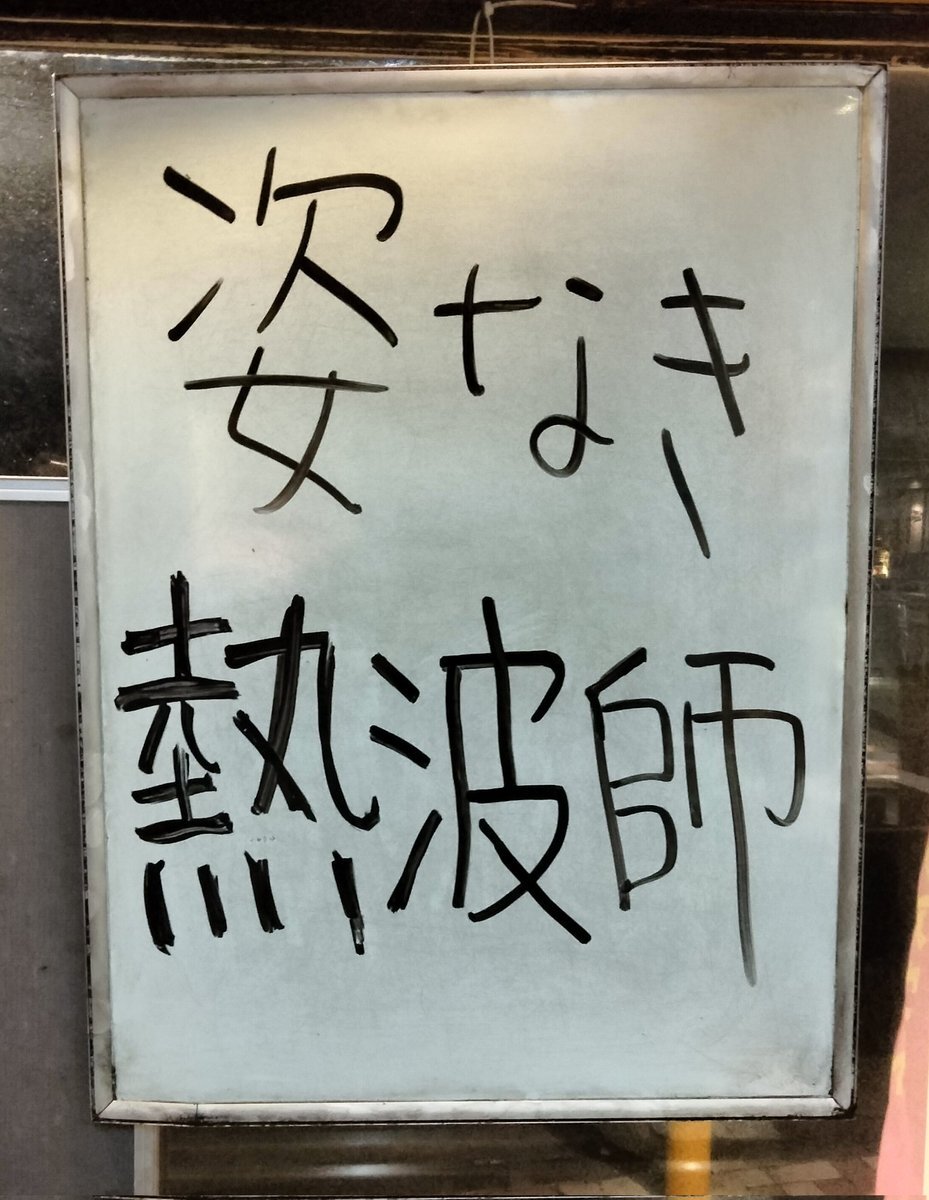 姿なき
熱波師